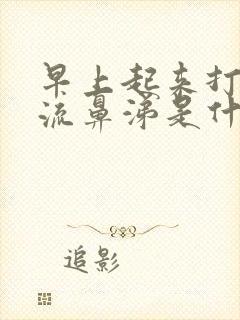 早上起来打
流鼻涕是什
追影